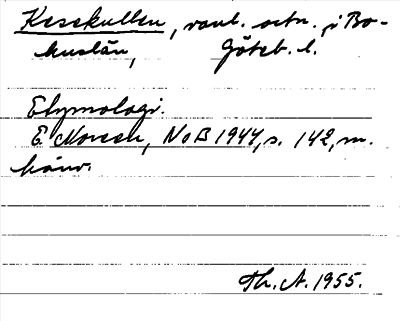 Kesskullen, vanl. ortn. i Bo-
huslän, Göteb. l.
Etymologi.
E. Noreen, NoB 1944, s. 142, m.
hänv.
Th. A. 1955.